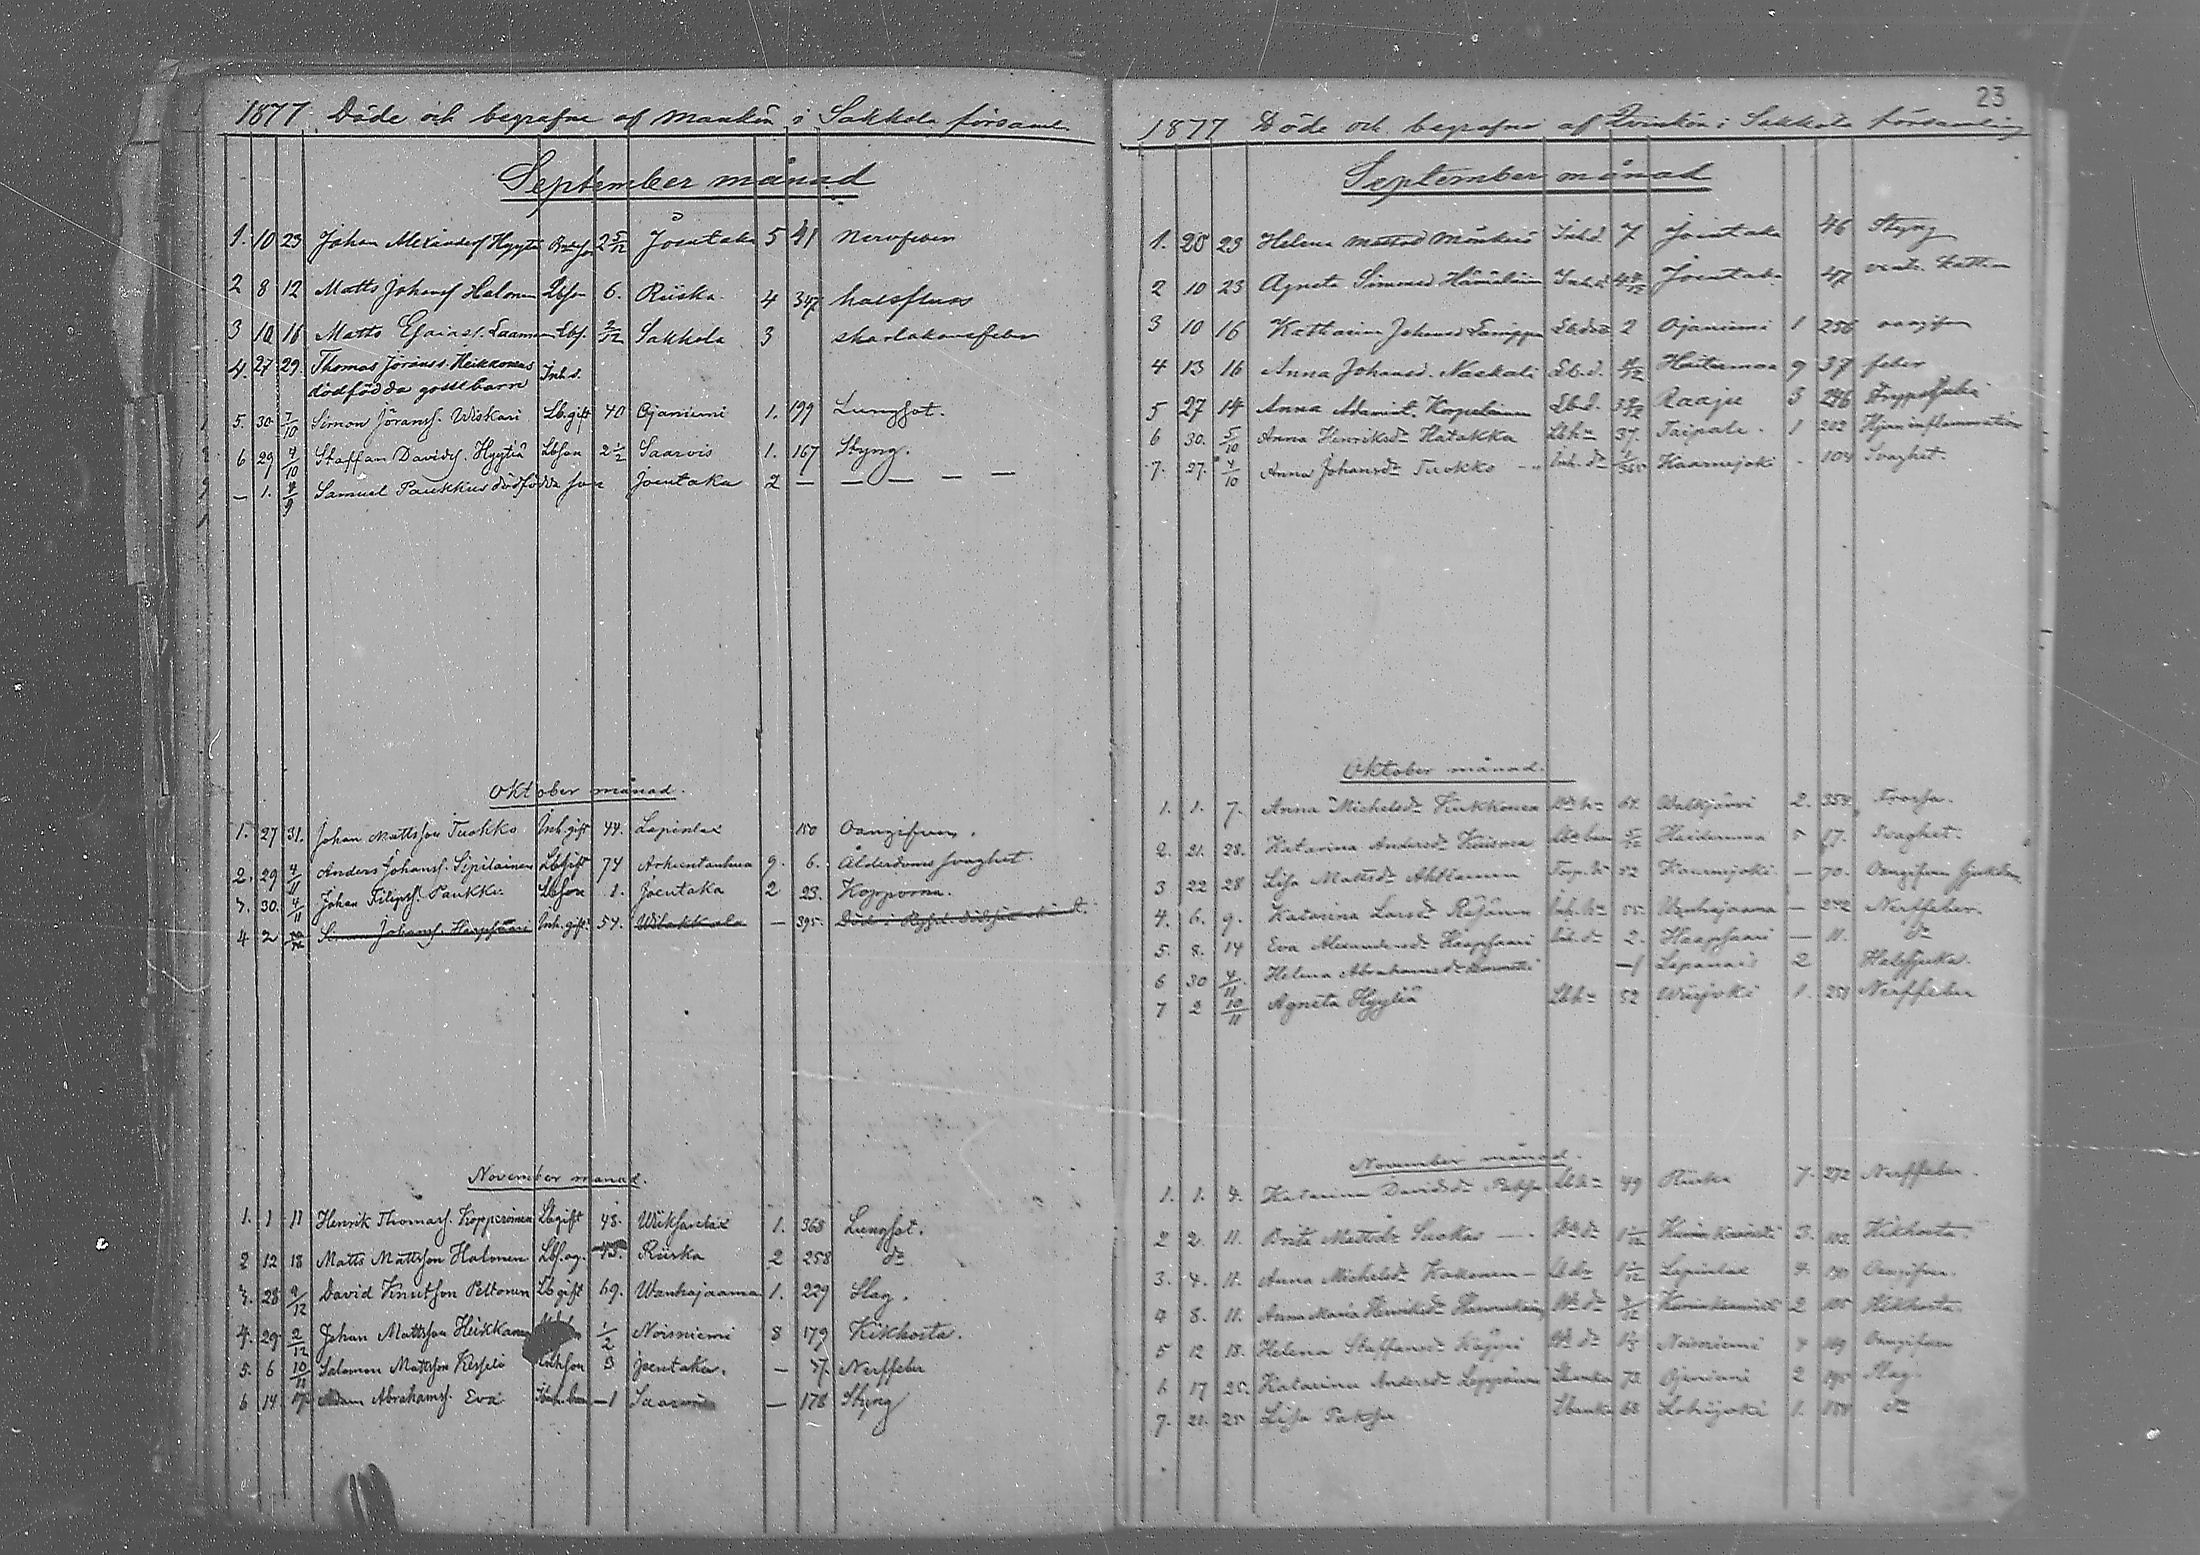 1877. Döde och begrafne af mankön i Sakkola församl.
September månad
1. 10 23 Johan Alexandersf Hyytiä 2 5/12 Joentaka 5 41 Nervfeber
2 8 12 Matts Johansf. Halonen Lbson 6. Riiska 4 347 halsfluss
3 10 16 Matts Esaiasf. Laamen Lbs. 2/12 Sakkola 3 skarlakansfeber
4. 27 29. Thomas Jöranss. Heikkonens Inh.s.
dödfödda gossebarn
5. 30 7/10 Simon Jöransf. Wiskari Lb.gift 40 Ojaniemi 1. 199 Lungsot.
6 29 4/10 Staffan Davidsf. Hyytiä Lbson 2 1/2 Saarois 1. 167 Styng.
— 1. 4/9 Samuel Paukkus dödfödda son Joentaka 2 — — — — —
Oktober månad.
1. 27 31. Johan Mattsson Tuokko Inh.gift 44. Lapinlax 150 Oangifven.
2. 29 4/11 Anders Johansf. Sipiläinen Lb.gift 74 Arkuntanhua 9. 6. Ålderdoms svaghet.
3. 30. 4/11 Johan Filipsf. Paukku Lbson 1. Joentaka 2 23. Kopporna.
4 2 Johansf. Haapsaari Inh.gift. 54. Wilakkala — 395.
November månad.
1. 1 11 Henrik Thomasf. Kopperoinen Lb.gift 48. Wiiksanlax 1. 368 Lungsot.
2 12 18 Matts Mattsson Halonen Lbs.og. 45. Riiska 2 258 do
3. 28 9/12 David Knutson Peltonen Lb gift 69. Wanhajaama 1. 229 Slag.
4. 29 2/12 Johan Mattsson Heikkanen 1/2 Noisniemi 8 179 Kikhosta.
5. 6 10/11 Salomon Mattsson Kesseli Inhson 3 Joentaka. — 47. Nerffeber
6 14 17 Adam Abrahamsf. Eva —1 — 178 Styng
23
1877 Döde och begrafne af Qvinkön i Sakkola församling
September månad
1. 20 23 Helena Mattsd Mönkus Inh.d. 7 Joentaka 46 Styng
2 10 23 Agneta Simonsd Hämäläin Inh.d. Joentaka 47
3 10 16 Katharina Johansd Lb.dr 2 Ojaniemi 1 256 oangifven
4 13 16 Anna Johansd. Naskali Lb.d. Haitermaa 9 37 feber
5 27 14 Anna Adamsd. Korpelainen Lb.d. Raaju 3 296
6 30. 5/10 Anna Henriksdr Hatakka Lbhu 37. Taipale. 1 202 Hjerninflammation
7. 27. 4/10 Anna Johansdr Tuokko Inh.dr Haarnajoki 104 Svaghet.
Oktober månad.
1. 1. 7. Anna Michelsdr Kukkonen Walkjärvi 2. 354 Frossa.
2. 21. 28. Katarina Andersdr Kuisma 5/12 Haidermaa 5 17. Svaghet.
3 22 28 Lisa Mattsdr Ahtiainen Torp.dr 52 Haarnajoki — 70. Oangifven sjukdom
4. 6. 9. Katarina Larsdr Räjänen Inh.hu 55. Wanhajaama — 242 Nerffeber.
5. 8. 14 Eva Alexandersdr Haapsaari Inh.dr 2. Haapsaari — 11. do
6 30 4/11 Helena Abrahamsdr —1 Lapanais 2 Halssjuka.
7 2 10/11 Agneta Hyytiä Lbhu 52 Wiisjoki 1. 251 Nerffeber
November månad.
1. 1. 4. Katarina Davidsdr Paksu Lbhu 49 Riiska 7. 272 Nerffeber.
2 2. 11. Brita Mattsdr Suokas — dr 1 1/12 Kiviniemi 3. 102. Kikhosta.
3. 4. 11. Anna Michelsdr Kakonen — Lbdr Lapinlax 4. 190 Oangifven.
4 8. 11. Anna Maria Henriksdr dr Kiviniemi 2 105 Kikhosta.
5 12 18. Helena Staffansdr Käppi dr Noisniemi 4 169 Oangifven
6 17 25. Katarina Andersdr Leppänen 72. Ojaniemi 2 195 Slag.
7. 21. 25 Lisa Paksu 68 Lohijoki 1. 184 do